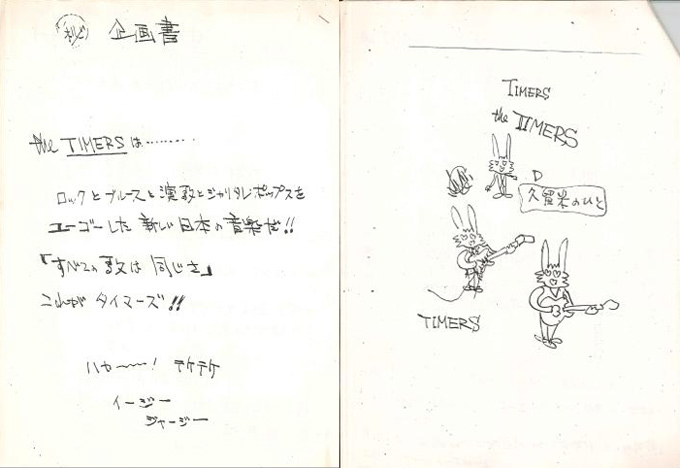 企画書
the TIMERSは………
ロックとブルースと演歌とジャリタレポップスを
ユーゴーした新しい日本の音楽だ!!
「すべての歌は同じさ」
これがタイマーズ!!
ハヤ〜〜! テケテケ
イージー
ジャージー
TIMERS
the TIMERS
D
久留米のひと
TIMERS